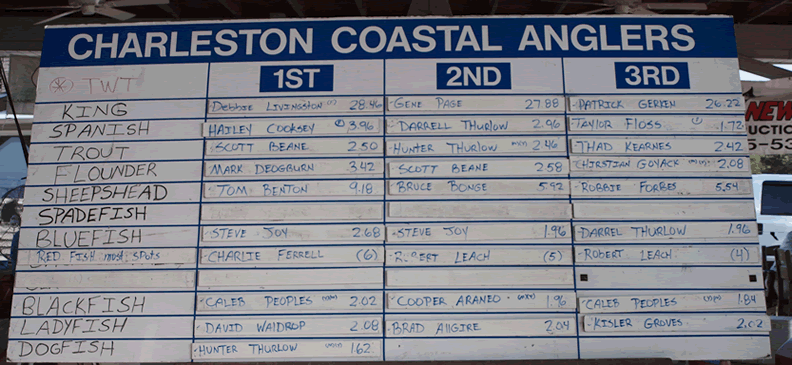 CHARLESTON COASTAL ANGLERS
TWT 1ST 2ND 3RD
KING Debbie Livingston 28.46 GENE PAGE 27.88 PATRICK GERKEN 26.22
SPANISH HAILEY COOKSEY 3.96 DARRELL THURLOW 2.96 TAYLOR FLOSS 1.72
TROUT SCOTT BEANE 2.50 HUNTER THURLOW 2.46 THAD KEARNES 2.42
FLOUNDER MARK DEOGBURN 3.42 SCOTT BEANE 2.58 CHIRSTIAN GOYACK 2.08
SHEEPSHEAD TOM BENTON 9.18 BRUCE BONGE 5.92 ROBBIE FORBES 5.54
SPADEFISH
BLUEFISH STEVE JOY 2.68 STEVE JOY 1.96 DARREL THURLOW 1.96
RED FISH most spots CHARLIE FERRELL (6) ROBERT LEACH (5) ROBERT LEACH (4)
BLACKFISH CALEB PEOPLES 2.02 COOPER ARANEO 1.96 CALEB PEOPLES 1.84
LADYFISH DAVID WALDROP 2.08 BRAD ALLGIRE 2.04 KISLER GROVES 2.02
DOGFISH HUNTER THURLOW 1.62
NEW
5-53